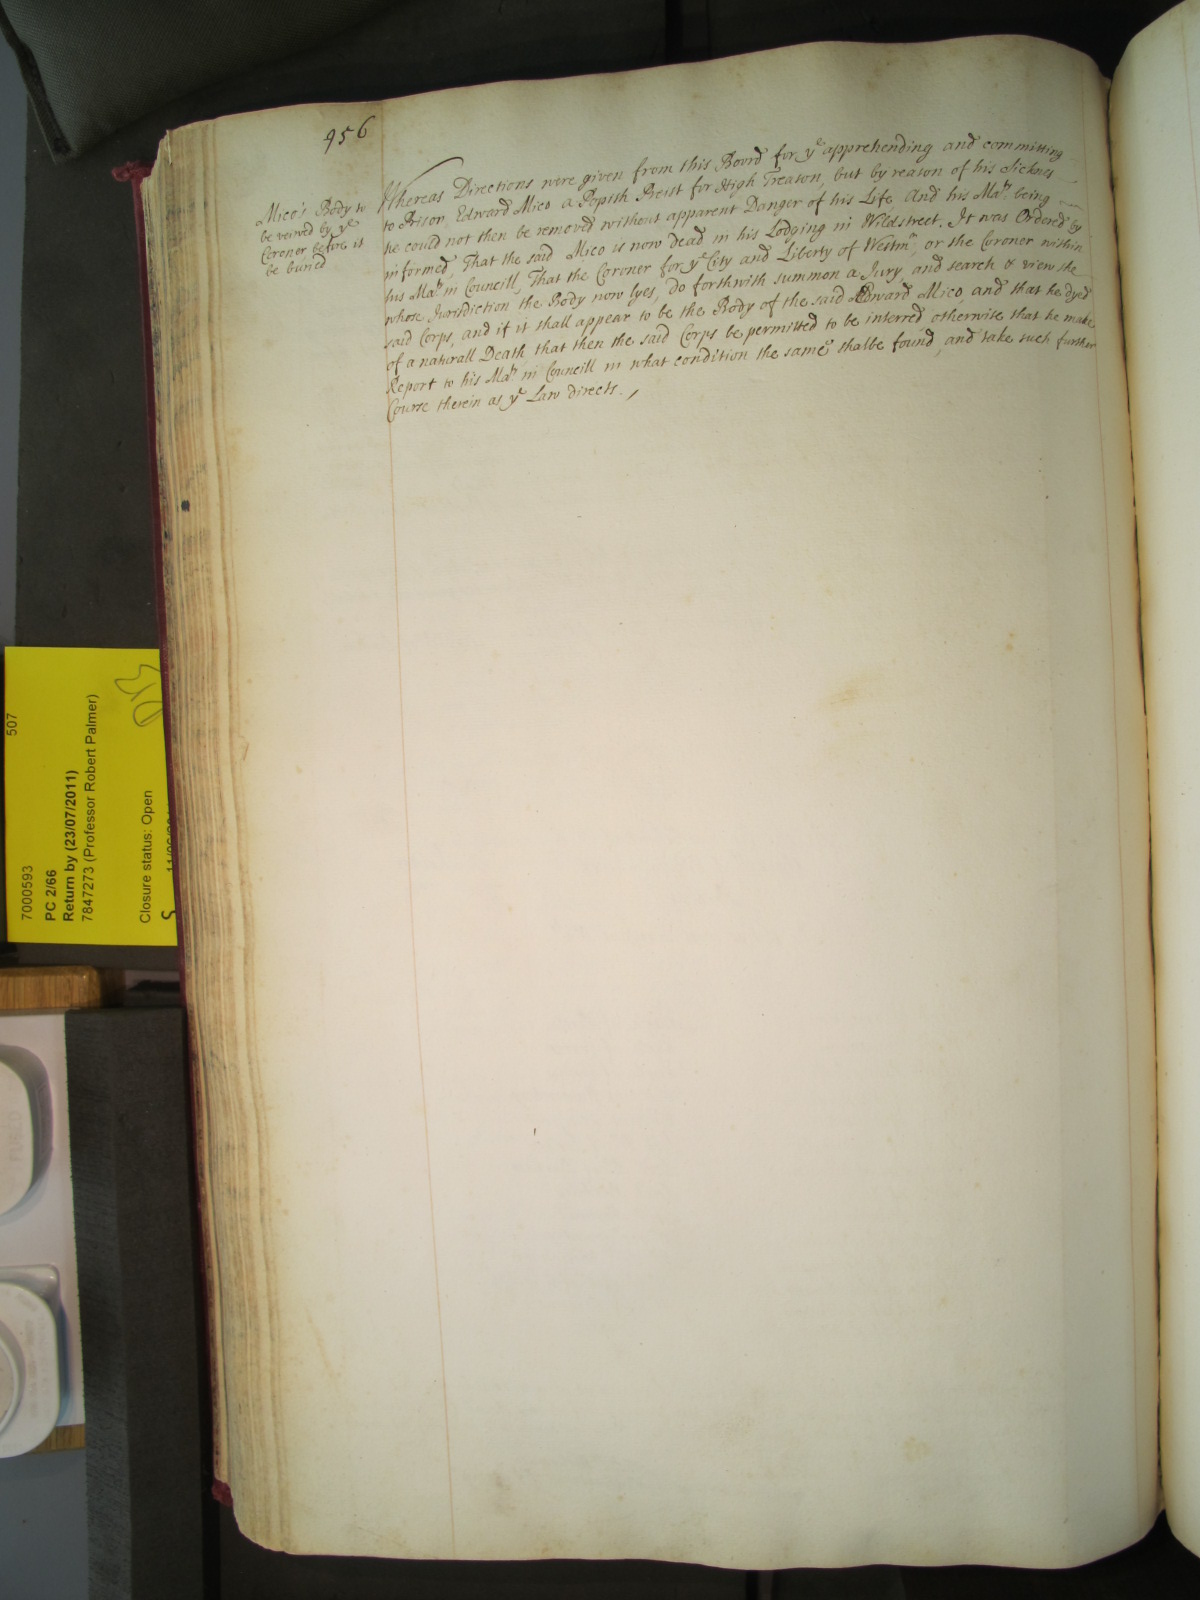 456
Mico's Body to
be veiwed by yᵉ
Coroner before it
be buried
Whereas Directions were given from this Board for yᵉ apprehending and committing
to Prison Edward Mico a Popish Preist for High Treason, but by reason of his Sicknes
he could not then be removed without apparent Danger of his Life, And his Maᵗʸ being
informed, That the said Mico is now dead in his Lodging in Wildstreet. It was Ordered by
his Maᵗʸ in Councill, That the Coroner for yᵉ City and Liberty of Westmʳ, or the Coroner within
whose Jurisdiction the Body now lyes, do forthwith summon a Jury, and search & view the
said Corps, and if it shall appear to be the Body of the said Edward Mico, and that he dyed
of a naturall Death that then the said Corps be permitted to be interred otherwise that he make
Report to his Maᵗʸ in Councill in what condition the same shalbe found, and take such further
Course therein as yᵉ Law directs.
507
7000593
PC 2/66
Return by (23/07/2011)
7847273 (Professor Robert Palmer)
Closure status: Open